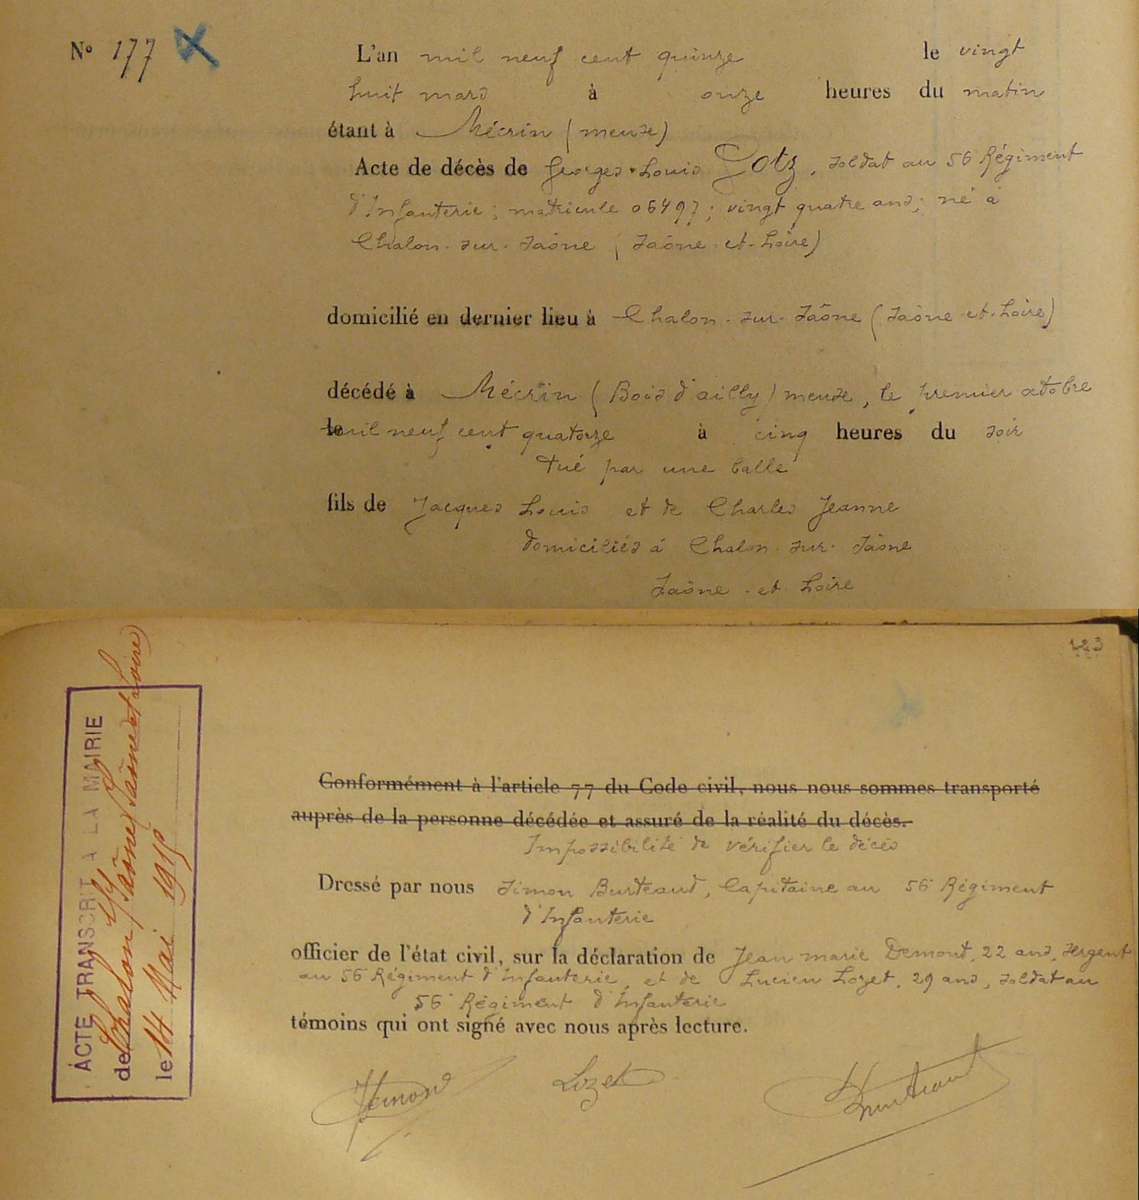 N° 177 X
L'an mil neuf cent quinze le vingt
huit mars à onze heures du matin
étant à Mécrin (meuse)
Acte de décès de Georges-Louis Gotz, soldat au 56 Régiment
d'Infanterie; matricule 06497; vingt quatre ans; né à
Chalon-sur-Saône (Saône-et-Loire)
domicilié en dernier lieu à Chalon-sur-Saône (Saône-et-Loire)
décédé à Mécrin (Bois d'ailly) meuse, le premier octobre
le mil neuf cent quatorze à cinq heures du soir
tué par une balle
fils de Jacques Louis et de Charles Jeanne
domiciliés à Chalon-sur-Saône
Saône-et-Loire
Conformément à l'article 77 du Code civil, nous nous sommes transporté
auprès de la personne décédée et assuré de la réalité du décès.
Impossibilité de vérifier le décès
Dressé par nous Simon Burteaud, Capitaine au 56 Régiment
d'Infanterie
officier de l'état civil, sur la déclaration de Jean marie Demont, 22 ans, sergent
au 56 Régiment d'Infanterie, et de Lucien Lozet, 29 ans, soldat au
56 Régiment d'Infanterie
témoins qui ont signé avec nous après lecture.
Demont Lozet Burteaud
ACTE TRANSCRIT A LA MAIRIE
de Chalon s/Saône (Saône et Loire)
le 14 Mai 1915